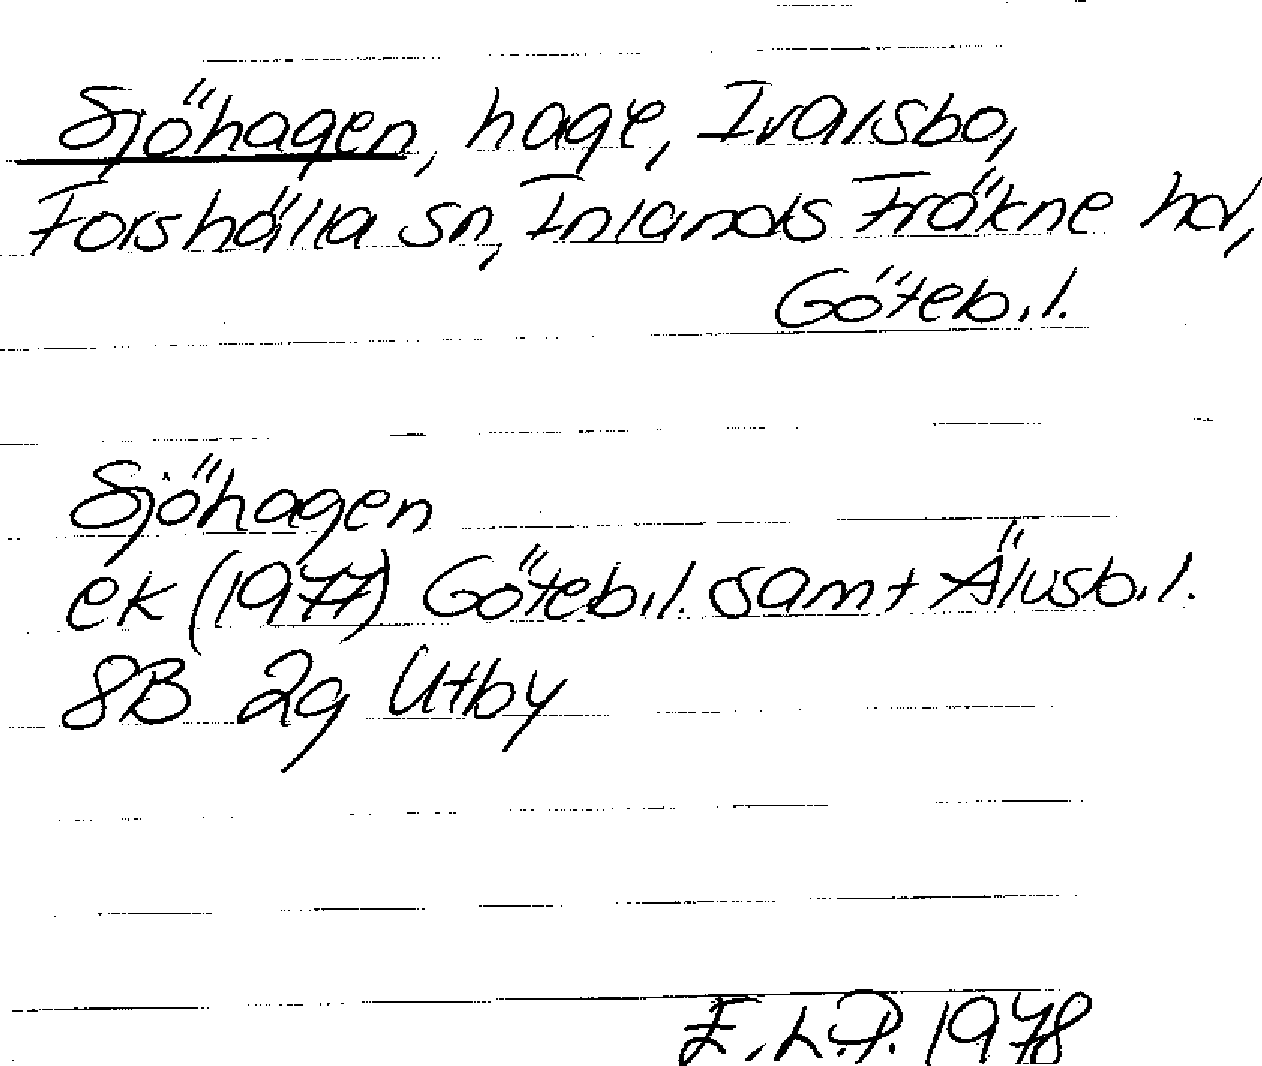 Sjöhagen, hage, Ivarsbo,
Forshälla sn, Inlands Fräkne hd,
Göteb.l.
Sjöhagen
ek (1977) Göteb.l. samt Älvsb.l.
8B 2g Utby
E.L.P. 1978